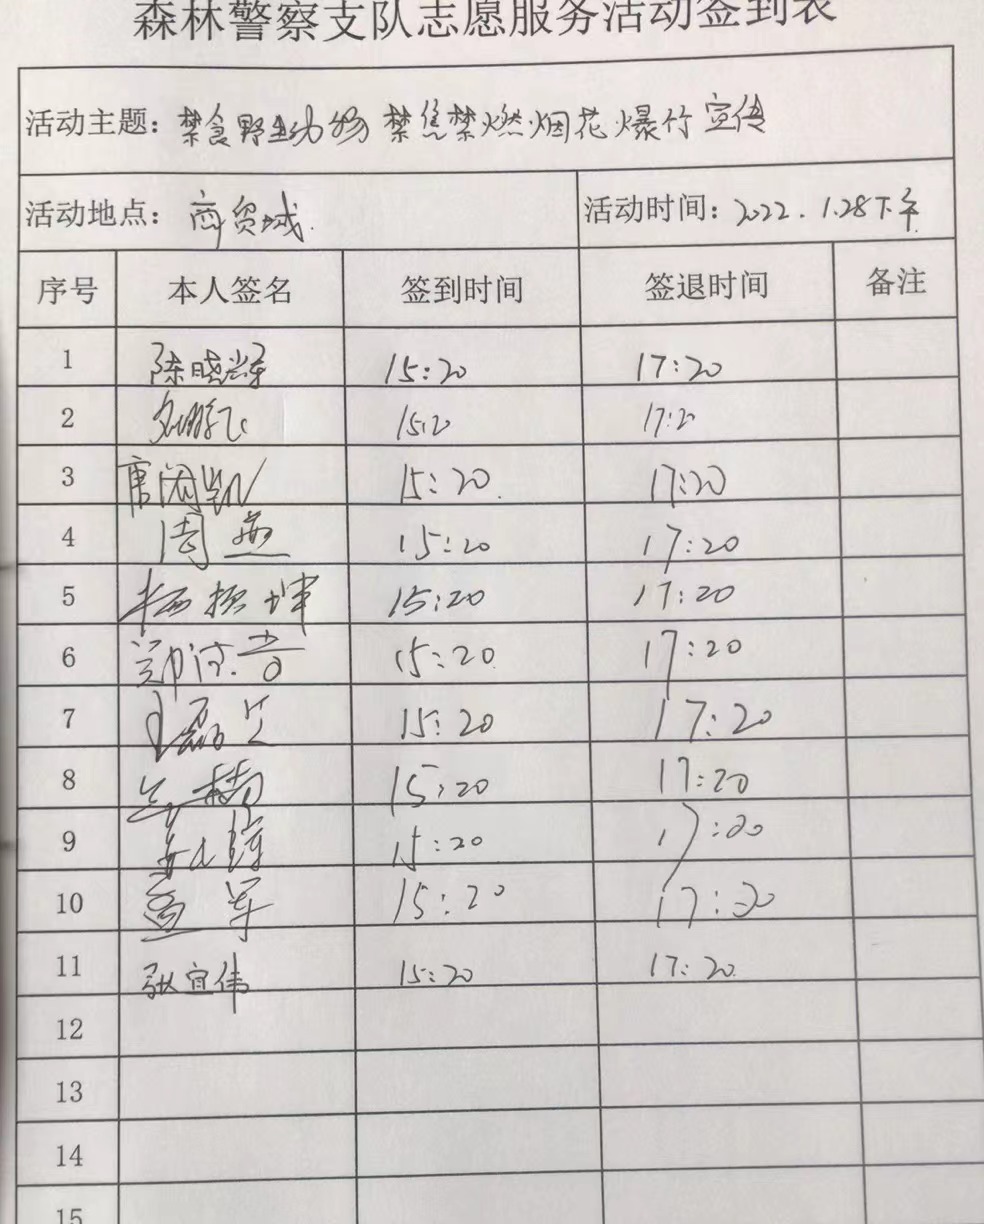 森林警察支队志愿服务活动签到表
活动主题: 禁食野生动物 禁售禁燃烟花爆竹宣传
活动地点: 商贸城. 活动时间: 2022.1.28下午
序号 本人签名 签到时间 签退时间 备注
1 陈晓 15:20 17:20
2 15:20 17:20
3 唐国凯 15:20 17:20
4 周燕 15:20 17:20
5 杨振坤 15:20 17:20
6 郑 15:20 17:20
7 15:20 17:20
8 15:20 17:20
9 15:20 17:20
10 军 15:20 17:20
11 张宜伟 15:20 17:20
12
13
14
15